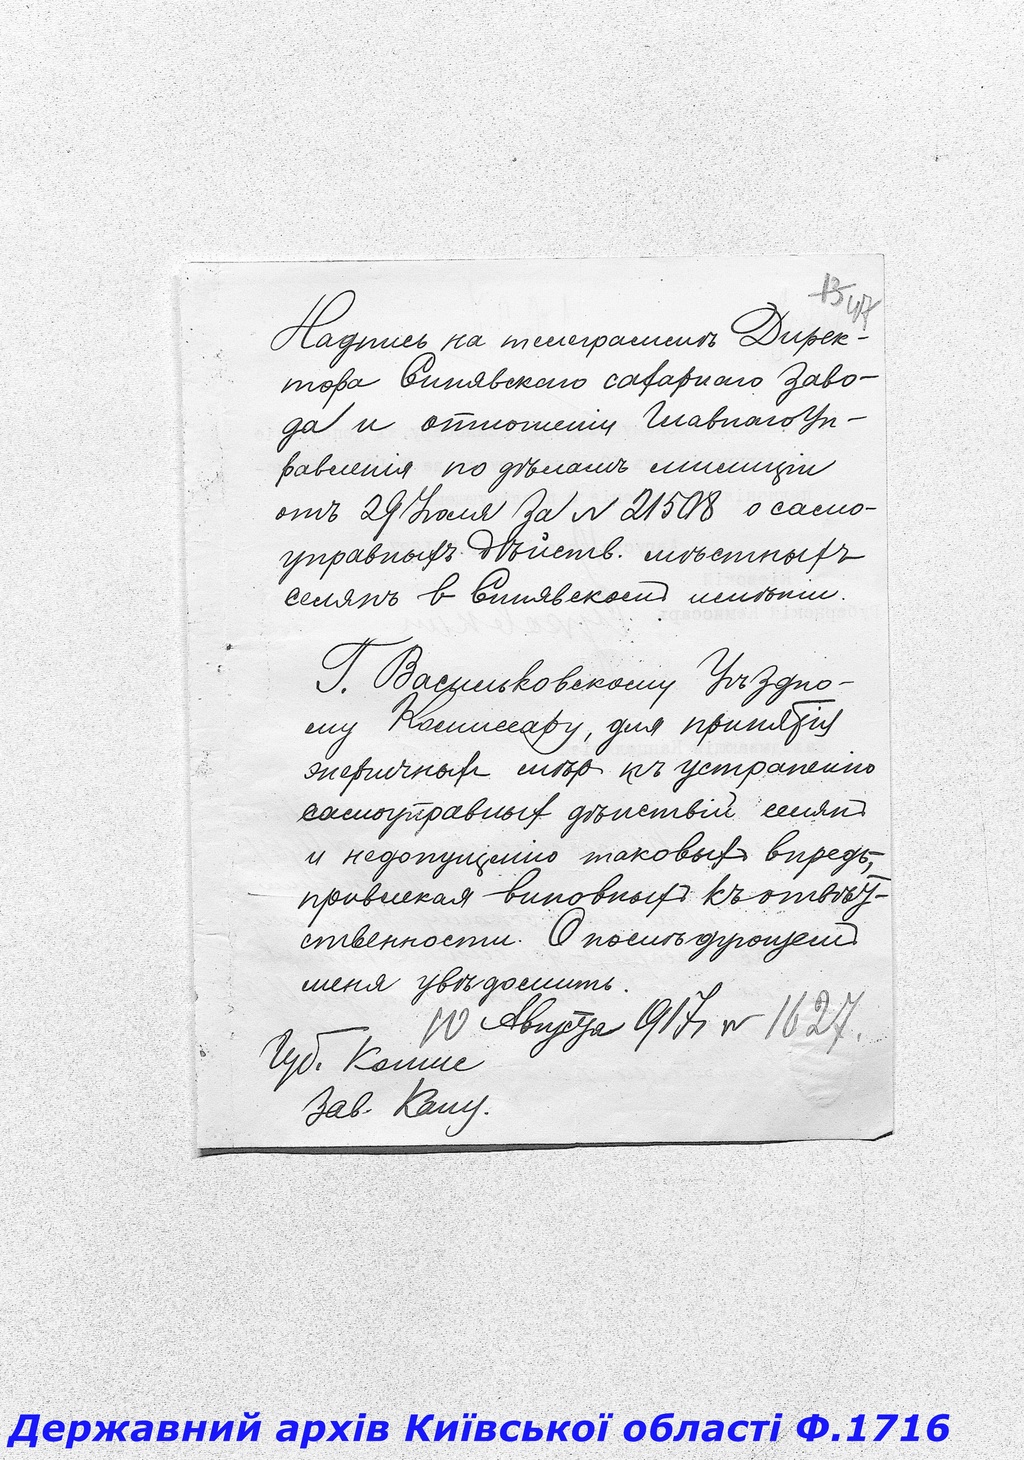 13 47
Надпись на телеграммѣ Дирек-
тора Синявскаго сахарнаго заво-
да и отношеніи Главнаго Уп-
равленія по дѣламъ милиціи
отъ 29 Іюля за № 21508 о само-
управныхъ дѣйств. мѣстныхъ
селянъ в Синявскомъ имѣніи.
Г. Васильковскому Уѣздно-
му Комиссару, для принятія
энергичных мѣр къ устраненію
самоуправных дѣйствій селян
и недопущенію таковыхъ впредь,
привлекая виновныхъ къ отвѣт-
ственности. О послѣдующемъ
меня увѣдомить.
10 Августа 917 г № 1627.
Губ. Комис
Зав. Канц.
Державний архів Київської області Ф.1716